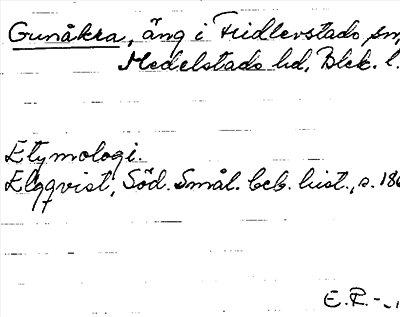 Gunåkra, äng i Fridlevstads sn,
Medelstads hd, Blek. l.
Etymologi.
Elgqvist, Söd. Smål. beb. hist., s. 186
E.P.